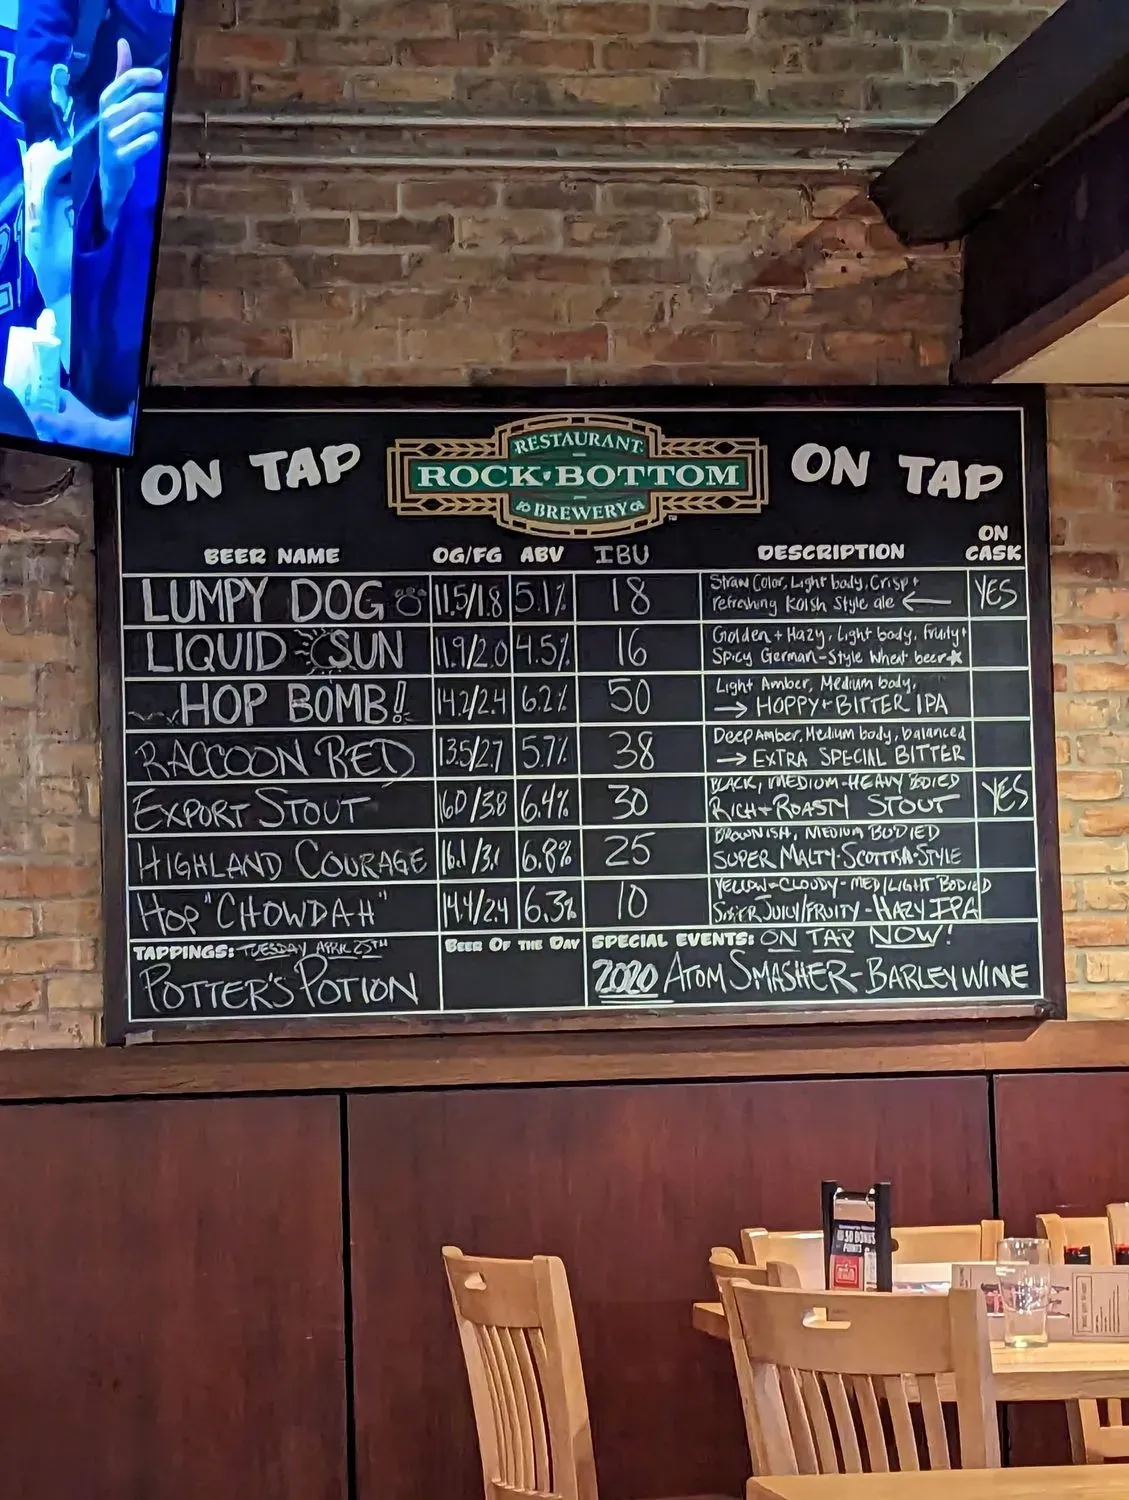 ON TAP
RESTAURANT
ROCK BOTTOM
BREWERY
ON TAP
BEER NAME OG/FG ABV IBU DESCRIPTION ON CASK
LUMPY DOG 11.5/1.8 5.1% 18 Straw Color, Light body, Crisp + YES
refreshing Kolsh Style ale ←
LIQUID SUN 11.9/2.0 4.5% 16 Golden + Hazy, Light body, fruity +
Spicy German-Style Wheat beer
HOP BOMB! 14.2/2.4 6.2% 50 Light Amber, Medium body,
→ HOPPY + BITTER IPA
RACCOON RED 13.5/2.7 5.7% 38 Deep Amber, Medium body, balanced
→ EXTRA SPECIAL BITTER
EXPORT STOUT 16.0/3.8 6.4% 30 BLACK, MEDIUM-HEAVY BODIED YES
RICH + ROASTY STOUT
HIGHLAND COURAGE 16.1/3.1 6.8% 25 BROWNISH, MEDIUM BODIED
SUPER MALTY-SCOTTISH-STYLE
HOP "CHOWDAH" 14.4/2.4 6.3% 10 YELLOW-CLOUDY-MED/LIGHT BODIED
JUICY/FRUITY-HAZY IPA
TAPPINGS: TUESDAY APRIL 25TH
POTTER'S POTION
BEER OF THE DAY
SPECIAL EVENTS: ON TAP NOW!
2020 ATOM SMASHER-BARLEY WINE
50 BONUS
POINTS